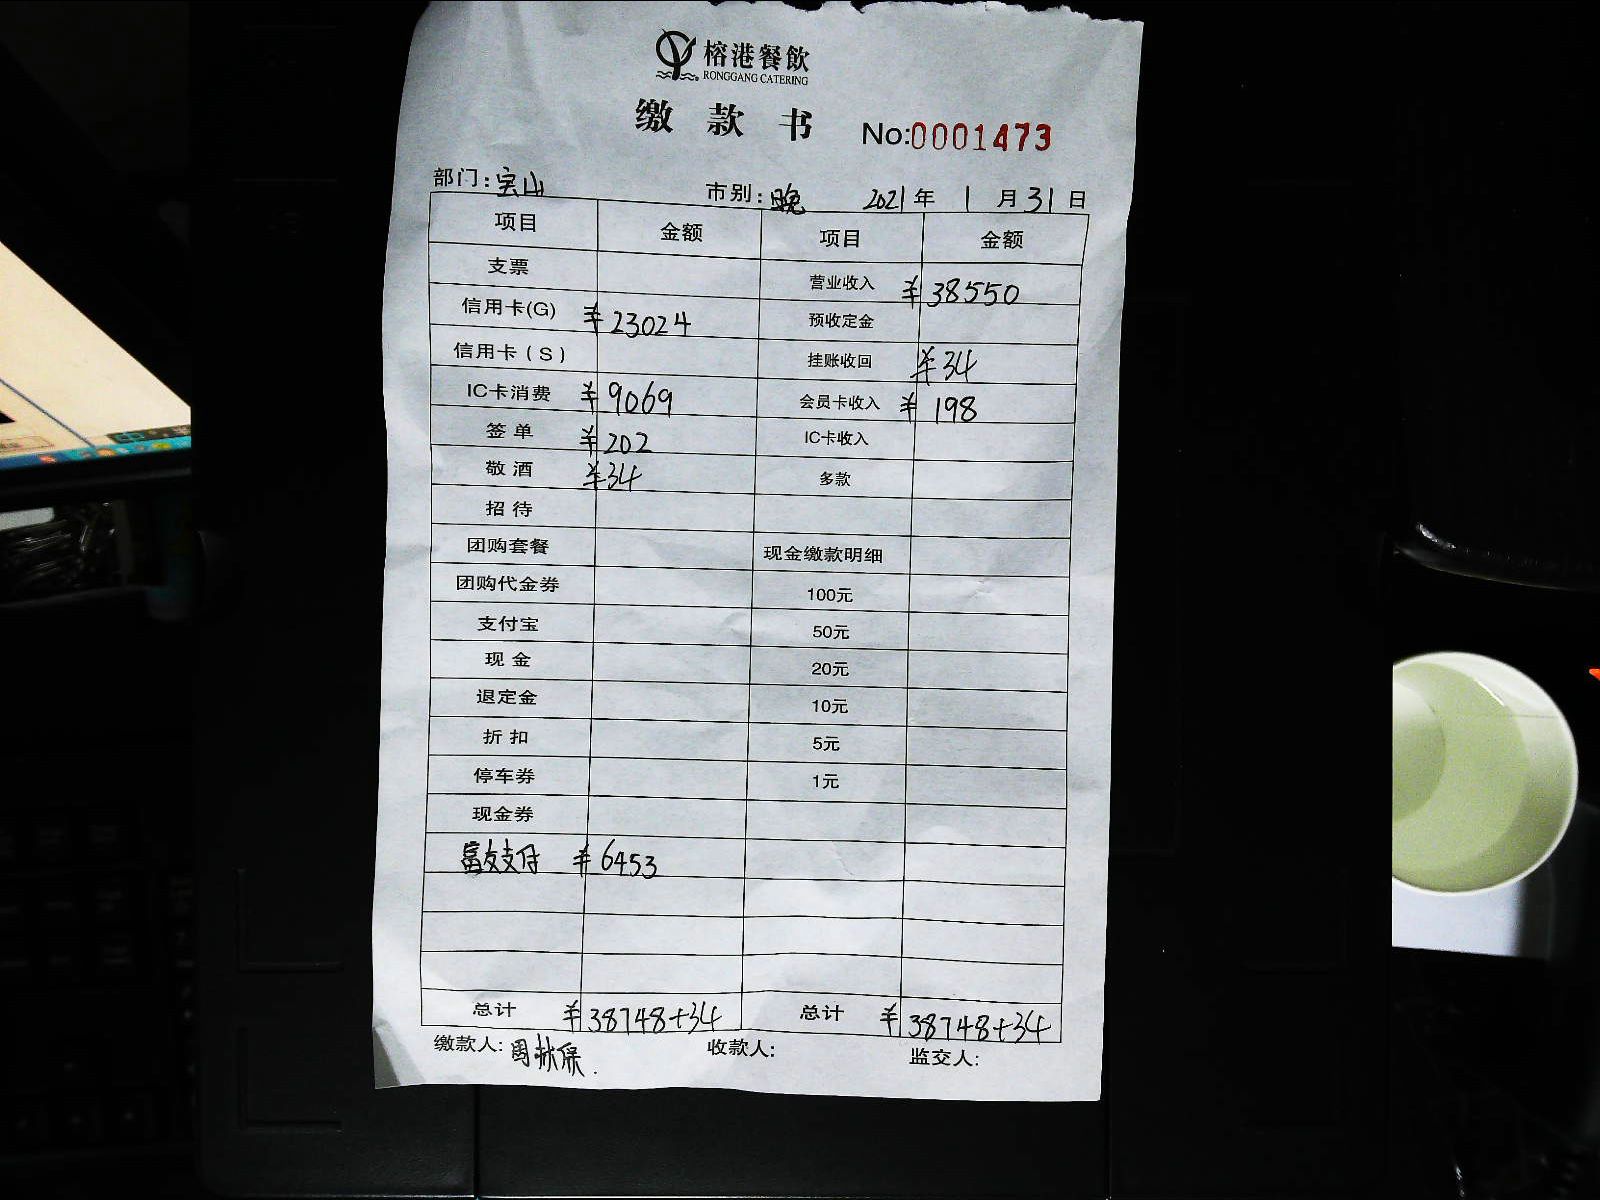 榕港餐飲
RONGGANG CATERING
缴款书 No:0001473
部门:宝山 市别:晚 2021年1月31日
项目 金额 项目 金额
支票 营业收入 ¥38550
信用卡(G) ¥23024 预收定金
信用卡(S) 挂账收回 ¥34
IC卡消费 ¥9069 会员卡收入 ¥198
签单 ¥202 IC卡收入
敬酒 ¥34 多款
招待
团购套餐 现金缴款明细
团购代金券 100元
支付宝 50元
现金 20元
退定金 10元
折扣 5元
停车券 1元
现金券
富友支付 ¥6453
总计 ¥38748+34 总计 ¥38748+34
缴款人:周秋保. 收款人: 监交人: